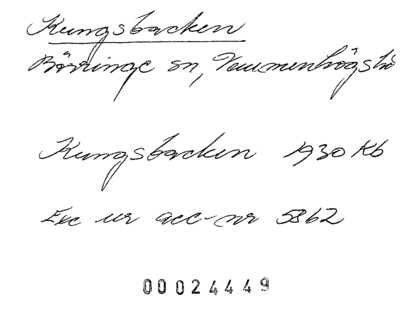 Kungsbacken
Börringe sn, Vemmenhögs hd
Kungsbacken 1930 Kb
Exc ur acc-nr 5862
00024449